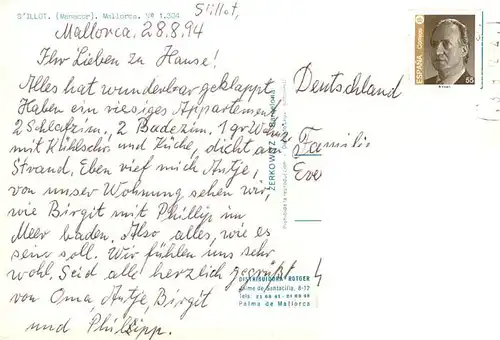 S'ILLOT. (Manacor). Mallorca. Nº 1.334
S'illot,
Mallorca, 28.8.94
Ihr Lieben zu Hause!
Alles hat wunderbar geklappt
Haben ein riesiges Appartement
2 Schlafzim., 2 Badezim, 1 gr Wohnz
mit Kühlschr und Küche, dicht am
Strand. Eben rief mich Antje,
von unser Wohnung sehen wir,
wie Birgit mit Phillip im
Meer baden. Also alles, wie es
sein soll. Wir fühlen uns sehr
wohl. Seid alle herzlich gegrüßt
von Oma, Antje, Birgit
und Philipp.
ZERKOWITZ
DISTRIBUIDORA ROTGER
Jaime de Santacilia, 8-12
Palma de Mallorca
ESPAÑA
Correos
55
Deutschland
Familie
Eve